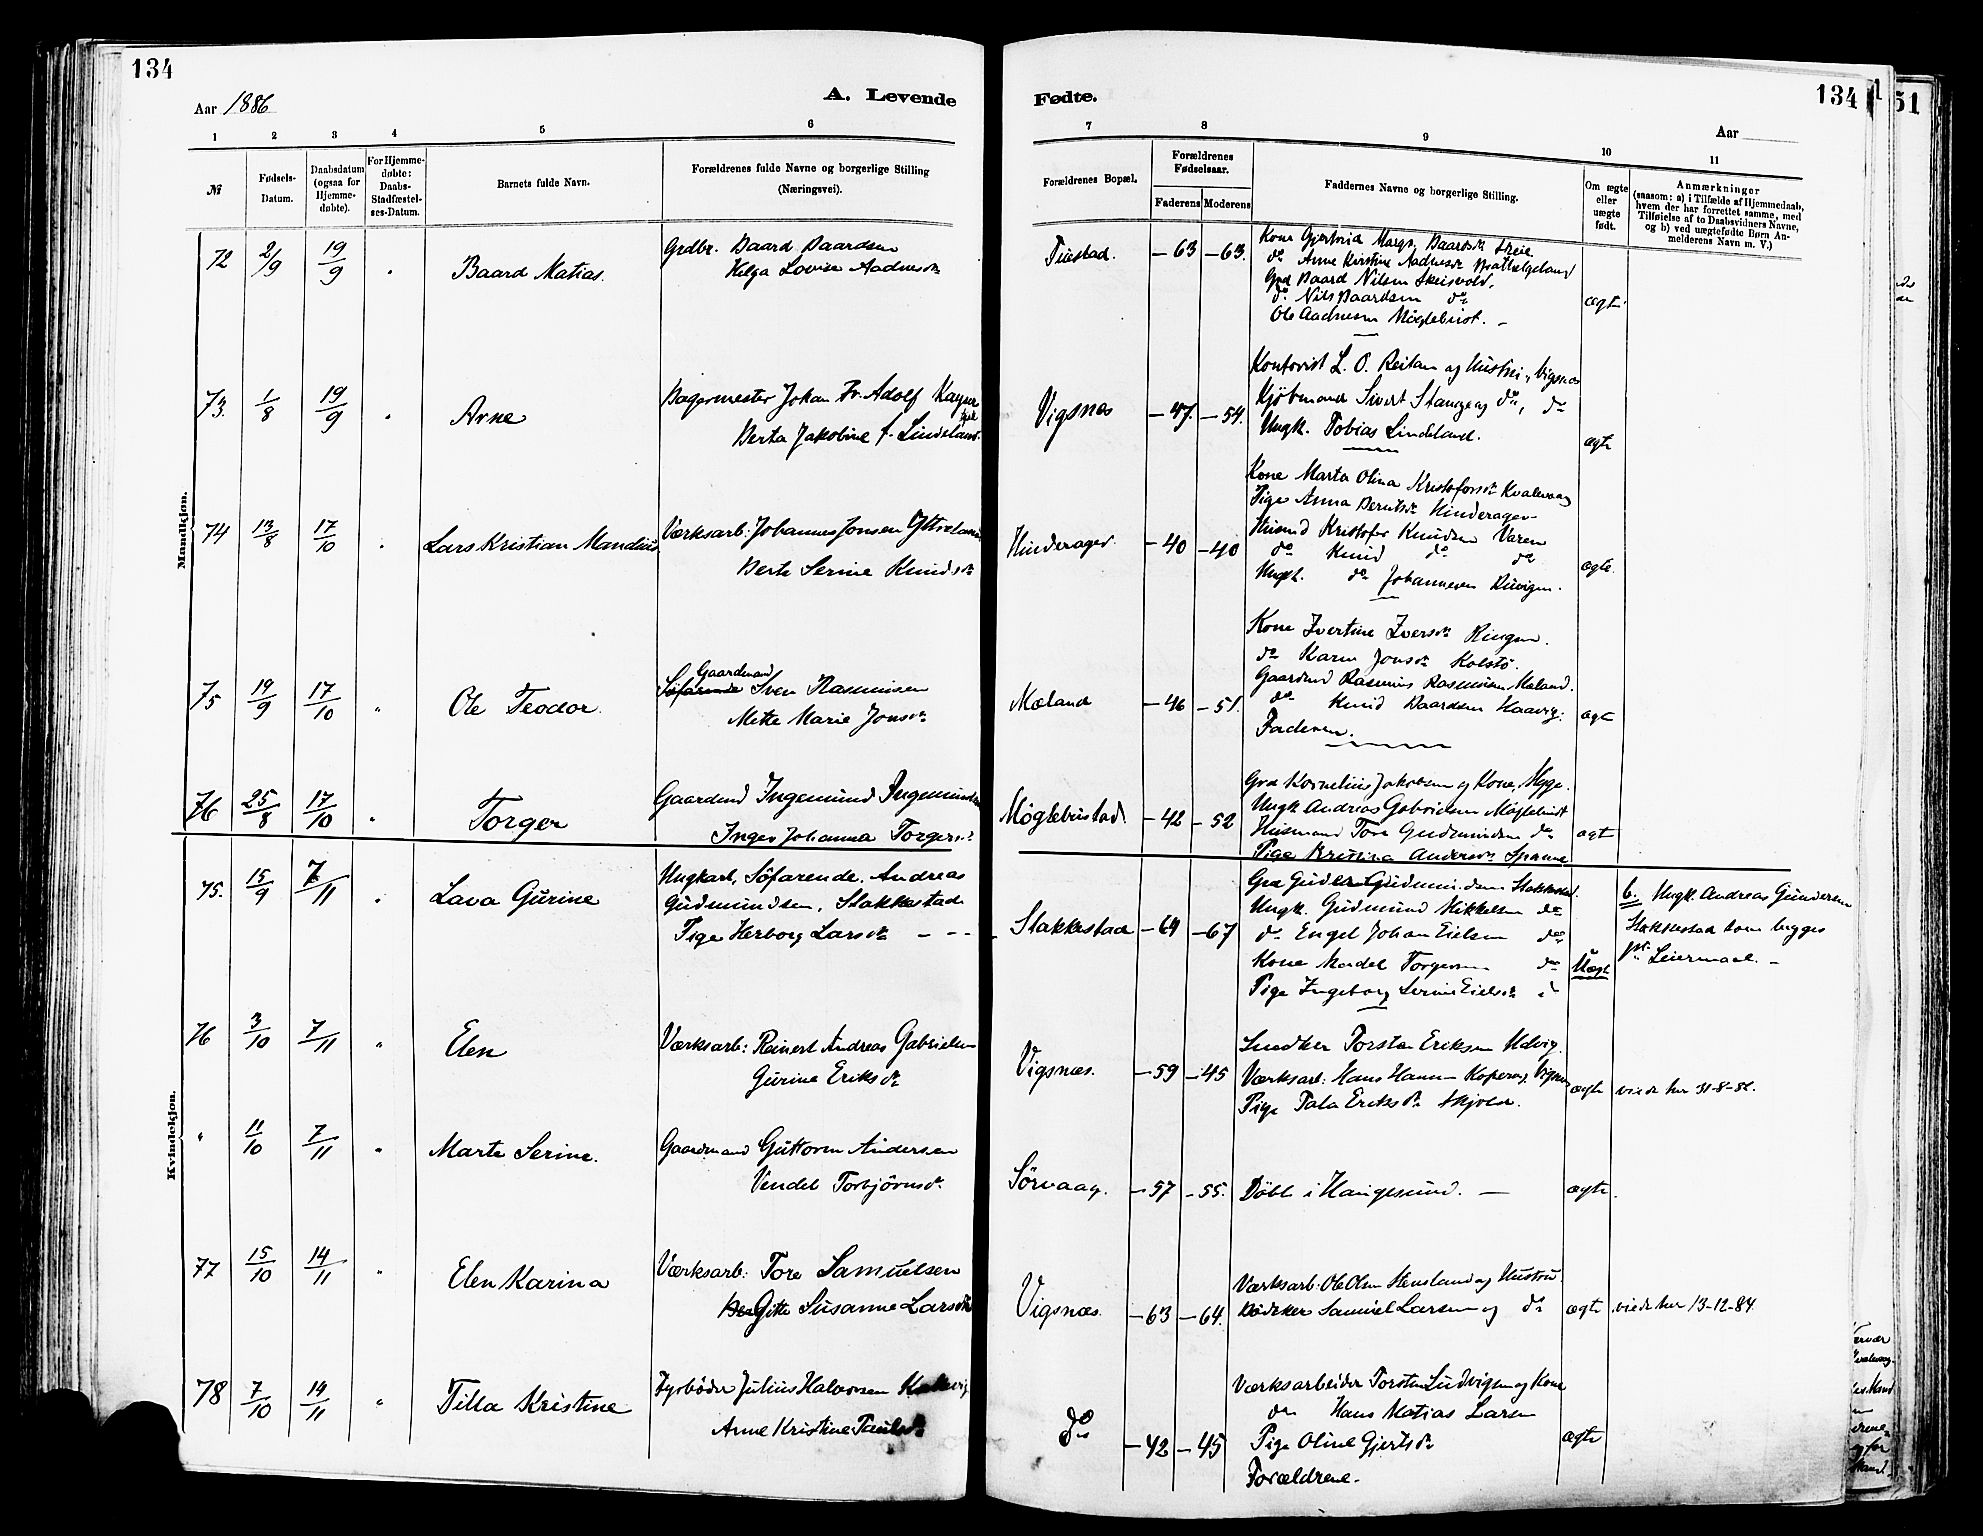 134
Aar 1886
A. Levende
1 2 3 4 5 6
№
Fødsels-Datum.
Daabsdatum (ogsaa for Hjemmedøbte).
For Hjemmedøbte: Daabs-Stadfæstelses-Datum.
Barnets fulde Navn.
Forældrenes fulde Navne og borgerlige Stilling (Næringsvei).
Mandkjøn.
72 2/9 19/9 " Baard Matias. Grdbr. Baard Baardsen
Helga Lovise Aadnesdr
73. 1/8 19/9 " Arne Bagermester Johan Fr. Adolf Kayser
Berta Jakobine f. Lindeland.
74 13/8 17/10 " Lars Kristian Mandius Værksarb: Johannes Jonsen Ytreland
Berte Serine Knudsdr
75 19/9 17/10 " Ole Teodor. Gaardmand
Søfarende Sven Rasmusen
Mette Marie Jonsdr
76 25/8 17/10 " Torger Gaardmd Ingemund Ingemundsen
Inger Johanna Torgersdr
Kvindekjøn.
75. 15/9 7/11 " Lava Gurine Ungkarl, Søfarende. Andreas
Gudmundsen, Stakkestad
Pige Herborg Larsdr - - -
76 3/10 7/11 " Elen Værksarb: Reinert Andreas Gabrielsen
Gurine Eriksdr
" 11/10 7/11 " Marte Serine. Gaardmand Guttorm Andersen
Vendel Torbjørnsdr
77 15/10 14/11 " Elen Karina Værksarb: Tore Samuelsen
Gitte Susanne Larsdr
78 7/10 14/11 " Tilla Kristine Fyrbøder Julius Halvorsen
Anne Kristine Paulsdr
Fødte.
134
51
Aar
7 8 9 10 11
Forældrenes Bopæl.
Forældrenes Fødselsaar.
Faderens Moderens
Faddernes Navne og borgerlige Stilling.
Om ægte eller uægte født.
Anmærkninger
(saasom: a) i Tilfælde af Hjemmedaab,
hvem der har forrettet samme, med
Tilføielse af to Daabsvidners Navne,
og b) ved uægtefødte Børn Anmelderens Navn m. V.)
Tuestad. -63 -63. Kone Gjertrud Margr. Baardsdr Skeie
do Anne Kirstine Aadnesdr
Grd Baard Nilsen Skeisvold,
do Nils Baardsen do
Ole Aadnesen Møglebust. -
ægte
Vigsnæs -47. -54. Kontorist L. O. Reitan og Hustru, Vigsnæs
Kjøbmand Sivert Stange og do, do
Ungk. Tobias Lindeland.
ægte
Hinderager. -40 -40 Kone Marta Olina Kristofersdr Kvalevaag
Pige Anna Berntsdr Hinderager
Husmd Kristofer Knudsen Varen
do Knud do do
Ungk. do Johannesen
ægte.
Mæland -46 -51. Kone Ivertine Iversdr Ringen.
do Karen Jonsdr Kolstø.
Gaardmd Rasmus Rasmusen Mæland.
do Knud Baardsen Haavig.
Faderen.
ægte
Møglebustad. -42 -52 Grd Kornelius Jakobsen og Kone, Myge.
Ungk. Andreas Gabrielsen Møglebust
Husmand Tore Gudmundsen do
Pige Kristina Andersdr Spanne
ægte
Stakkestad -64 -67 Grd Gudmundsen Stakkestad.
Ungk. Gudmund Mikkelsen do
do Engel Johan Eielsen do
Kone Madel Torgersen do
Pige Ingeborg Serine Eielsdr do
Uægte
6. Ungk. Andreas Gundersen
Stakkestad som begges
1ste Leiermaal. -
Vigsnæs. -59 -45 Snedker Torsten Eriksen Udvig.
Værksarb: Hans Hansen Kopervig, Vigsnæs
Pige Tala Eriksdr Skjold.
ægte viede her 31-8-82.
Sørvaag. -57 -55. Døbt i Haugesund. -
ægte
Vigsnæs. -63 -64. Værksarb: Ole Olsen Stensland og Hustru
Bødeker Samuel Larsen og do
ægte viede her 13-12-84.
do -42 -45 Værksarbeider Torsten Ludvigsen og Kone
do Hans Matias Larsen
Pige Oline Gjertsdr
Forældrene.
ægte